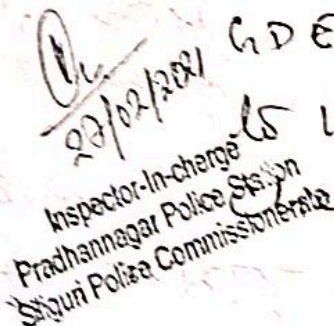 27/02/2021
G D E
Inspector-In-charge
Pradhannagar Police Station
Siliguri Police Commissionerate